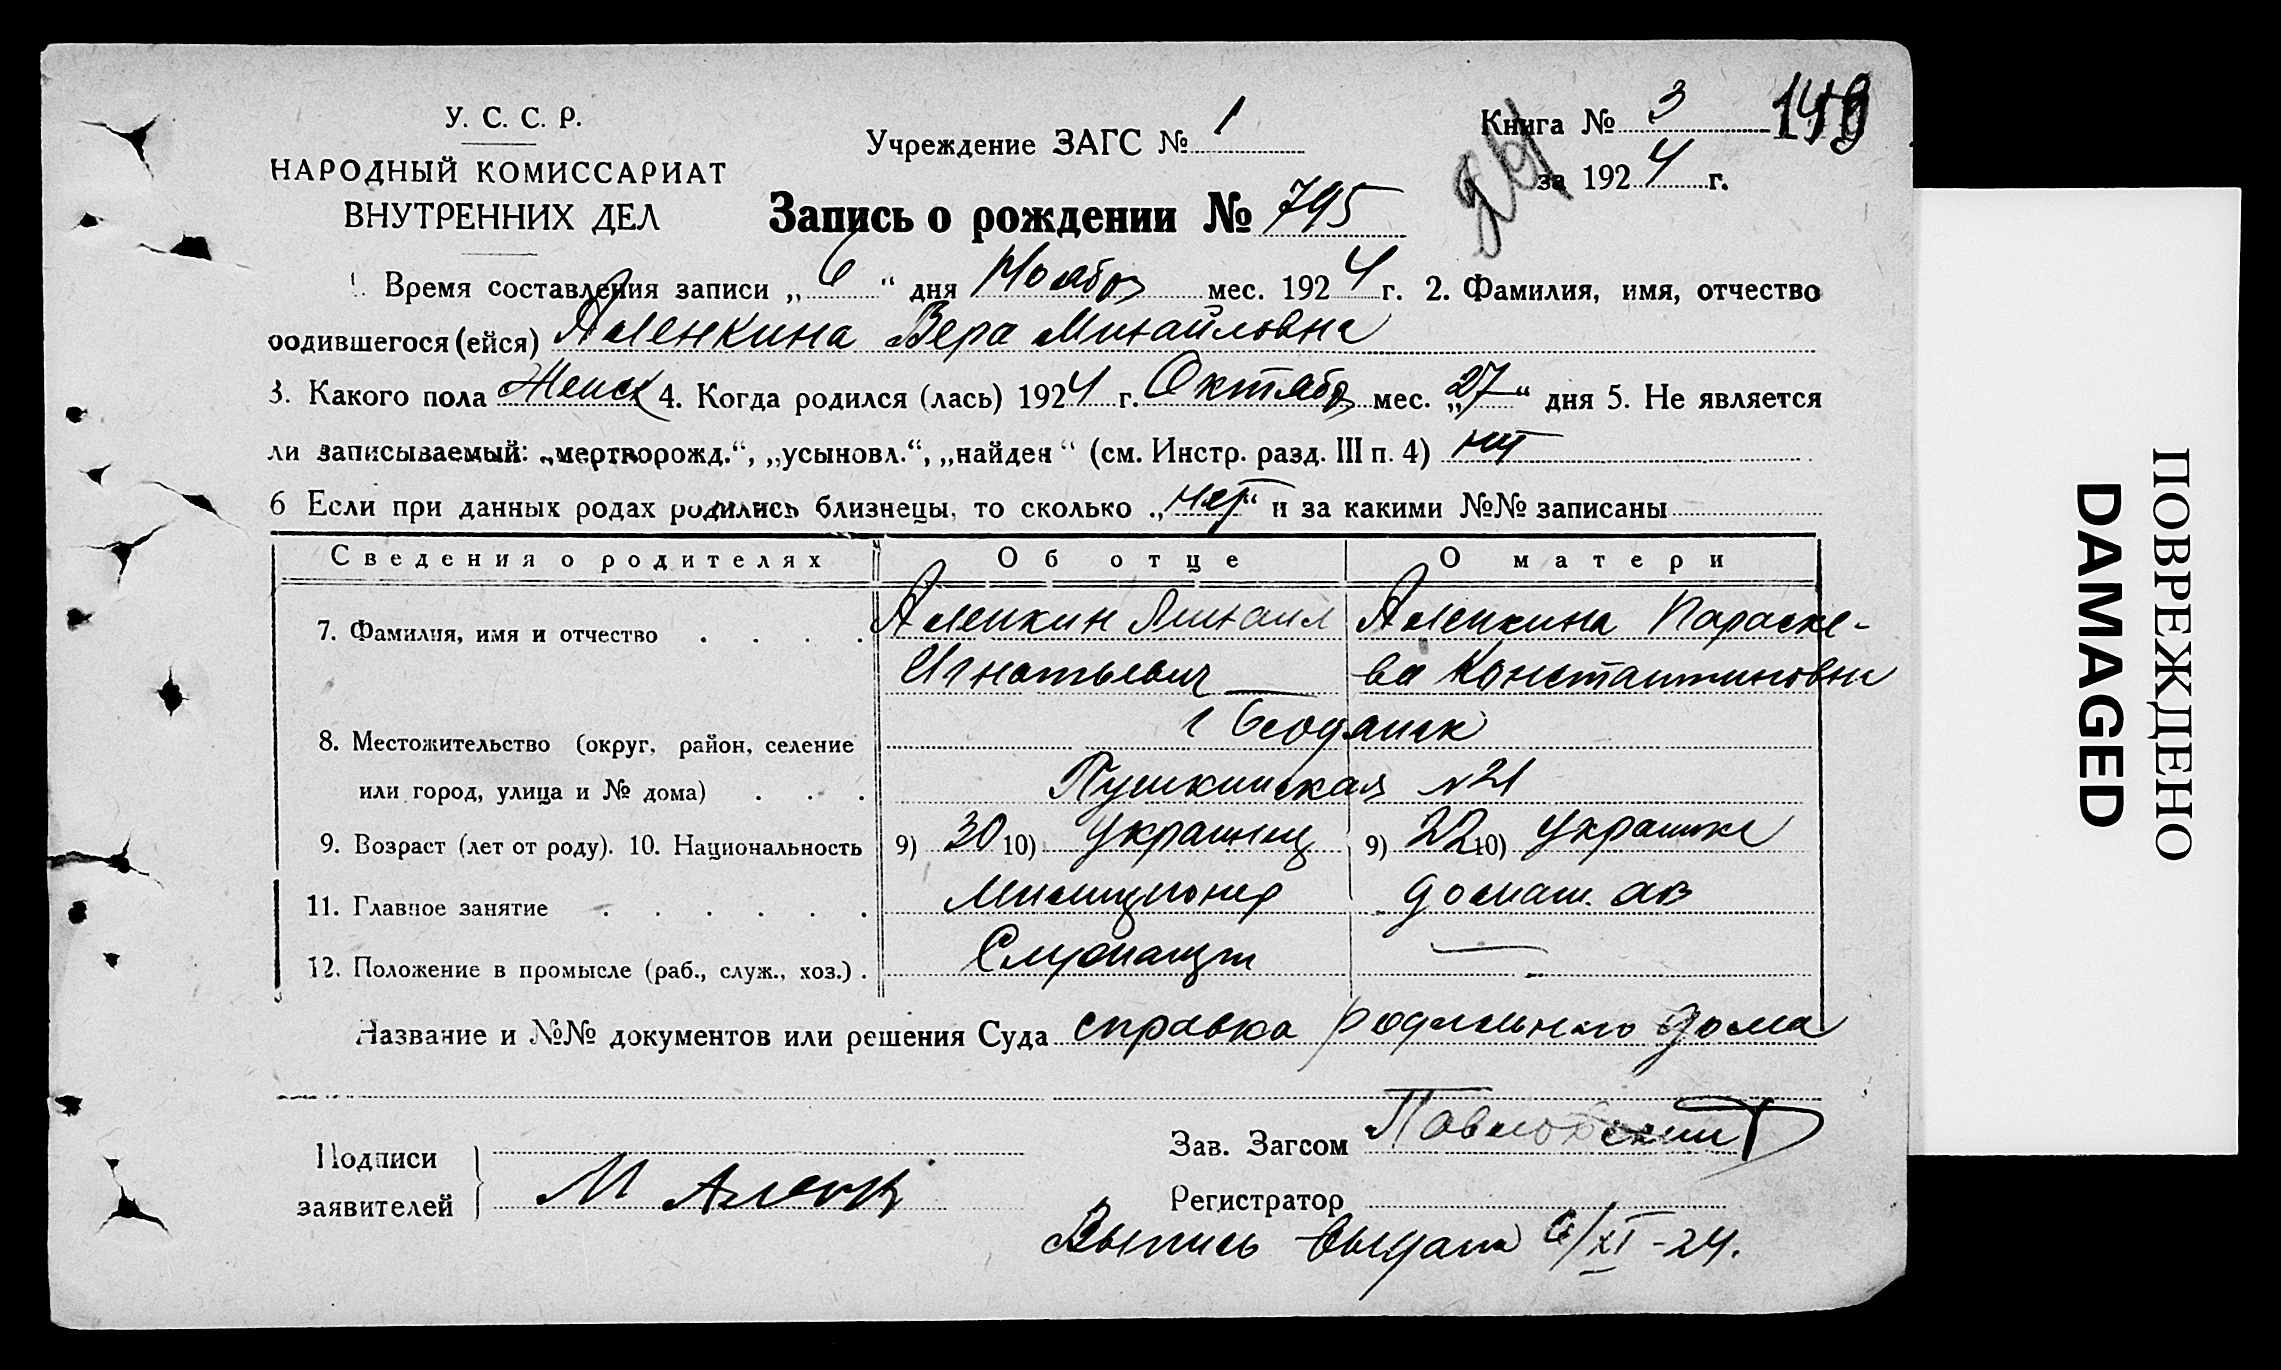 У. С. С. Р.
НАРОДНЫЙ КОМИССАРИАТ
ВНУТРЕННИХ ДЕЛ
Учреждение ЗАГС № 1
Книга № 3
за 1924 г.
Запись о рождении № 795
1. Время составления записи „6“ дня Ноября мес. 1924 г. 2. Фамилия, имя, отчество
родившегося (ейся) Аленкина Вера Михайловна
3. Какого пола Женск 4. Когда родился (лась) 1924 г. Октября мес. „27“ дня 5. Не является
ли записываемый: „мертворожд.“, „усыновл.“, „найден“ (см. Инстр. разд. III п. 4) нет
6 Если при данных родах родились близнецы, то сколько „нет“ и за какими №№ записаны
Сведения о родителях Об отце О матери
7. Фамилия, имя и отчество . . . . Аленкин Михаил Аленкина Параске-
Игнатьевич ва Константиновна
8. Местожительство (округ, район, селение г
или город, улица и № дома) . . . Пушкинская №21
9. Возраст (лет от роду). 10. Национальность 9) 30 10) Украинец 9) 22 10) Украинка
11. Главное занятие . . . . . . Милиционер домаш.
12. Положение в промысле (раб., служ., хоз.) . Служащий —
Название и №№ документов или решения Суда справка родильного дома
Подписи
заявителей
М Аленк
Зав. Загсом Павловский
Регистратор
Выпись выдана 6/XI-24.
ПОВРЕЖДЕНО
DAMAGED